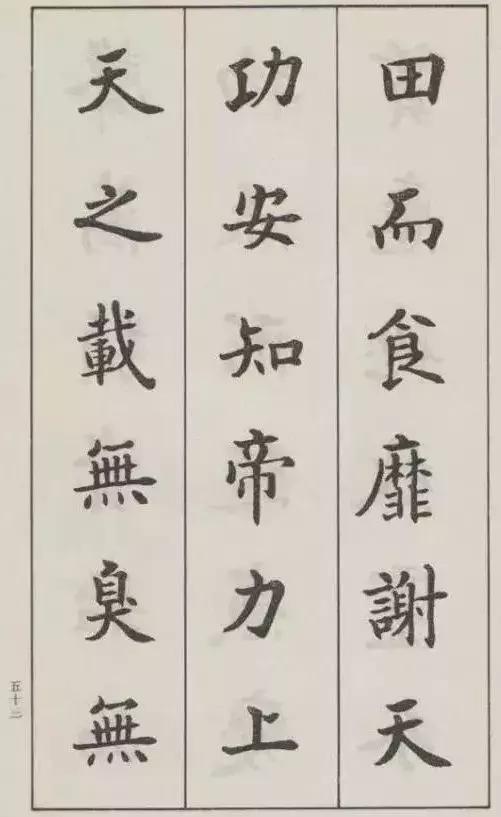 田而食靡謝天
功安知帝力上
天之載無臭無